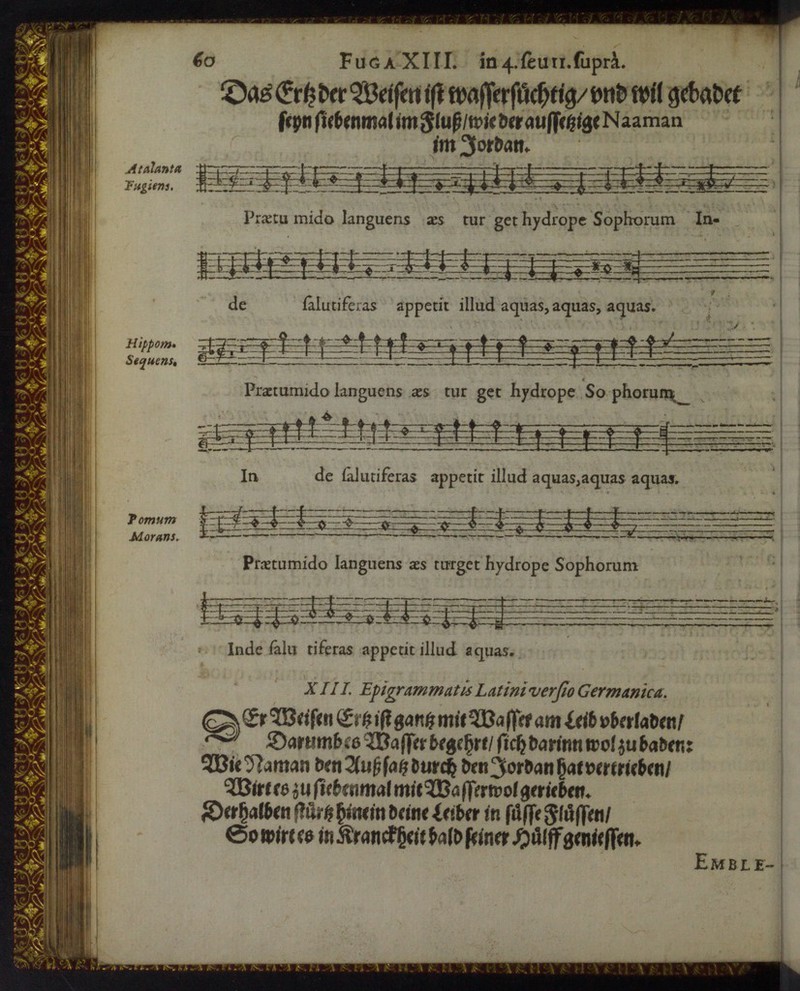 60 FUGA XIII. in 4. seu 11. suprà.
Das Ertz der Weisen ist wassersüchtig / vnd wil gebadet
seyn siebenmal im Fluß / wie der aussetzige Naaman
im Jordan.
Atalanta
Fugiens.
Prætu mido languens æs tur get hydrope Sophorum In-
de salutiferas appetit illud aquas, aquas, aquas.
Hippom.
Sequens,
Prætumido languens æs tur get hydrope So phorum
In de salutiferas appetit illud aquas, aquas aquas.
Pomum
Morans.
Prætumido languens æs turget hydrope Sophorum
Inde salu tiferas appetit illud aquas.
XIII. Epigrammatis Latini versio Germanica.
DEr Weisen Ertz ist gantz mit Wasser am Leib vberladen /
Darumb es Wasser begehrt / sich darinn wol zu baden:
Wie Naman den Außsatz durch den Jordan hat vertrieben /
Wirt es zu siebenmal mit Wasser wol gerieben.
Derhalben stürtz hinein deine Leiber in süsse Flüssen /
So wirt es in Kranckheit bald seiner Hülff geniessen.
EMBLE-